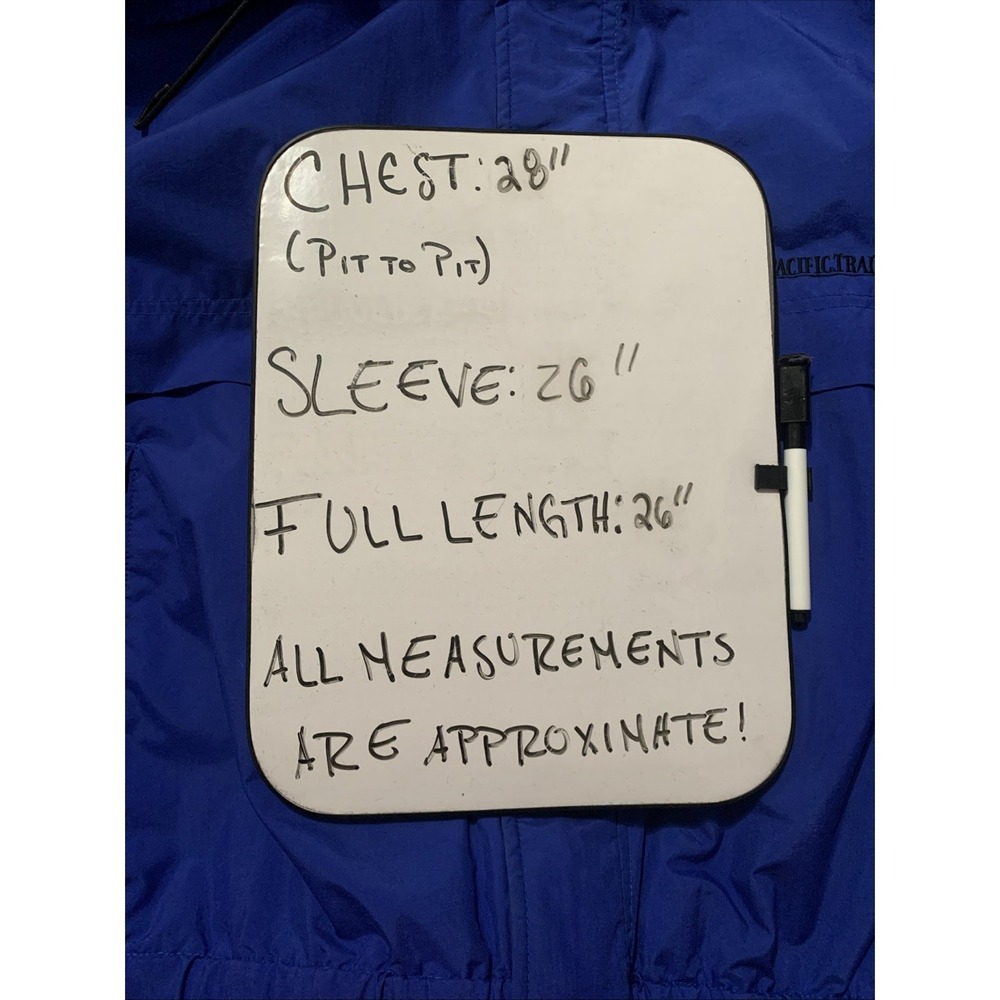 CHEST: 28"
(PIT TO PIT)
PACIFIC.TRAI
SLEEVE: 26"
FULL LENGTH: 26"
ALL MEASUREMENTS
ARE APPROXIMATE!